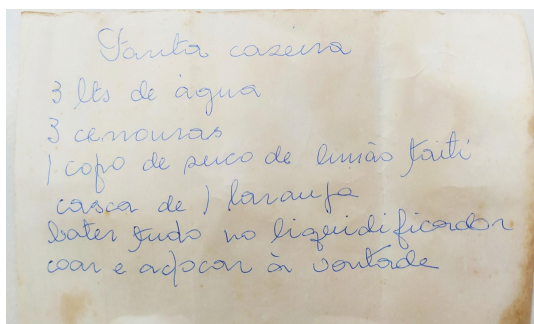 Fanta caseira
3 lts de água
3 cenouras
1 copo de suco de limão taiti
casca de 1 laranja
bater tudo no liquidificador
coar e adoçar à vontade